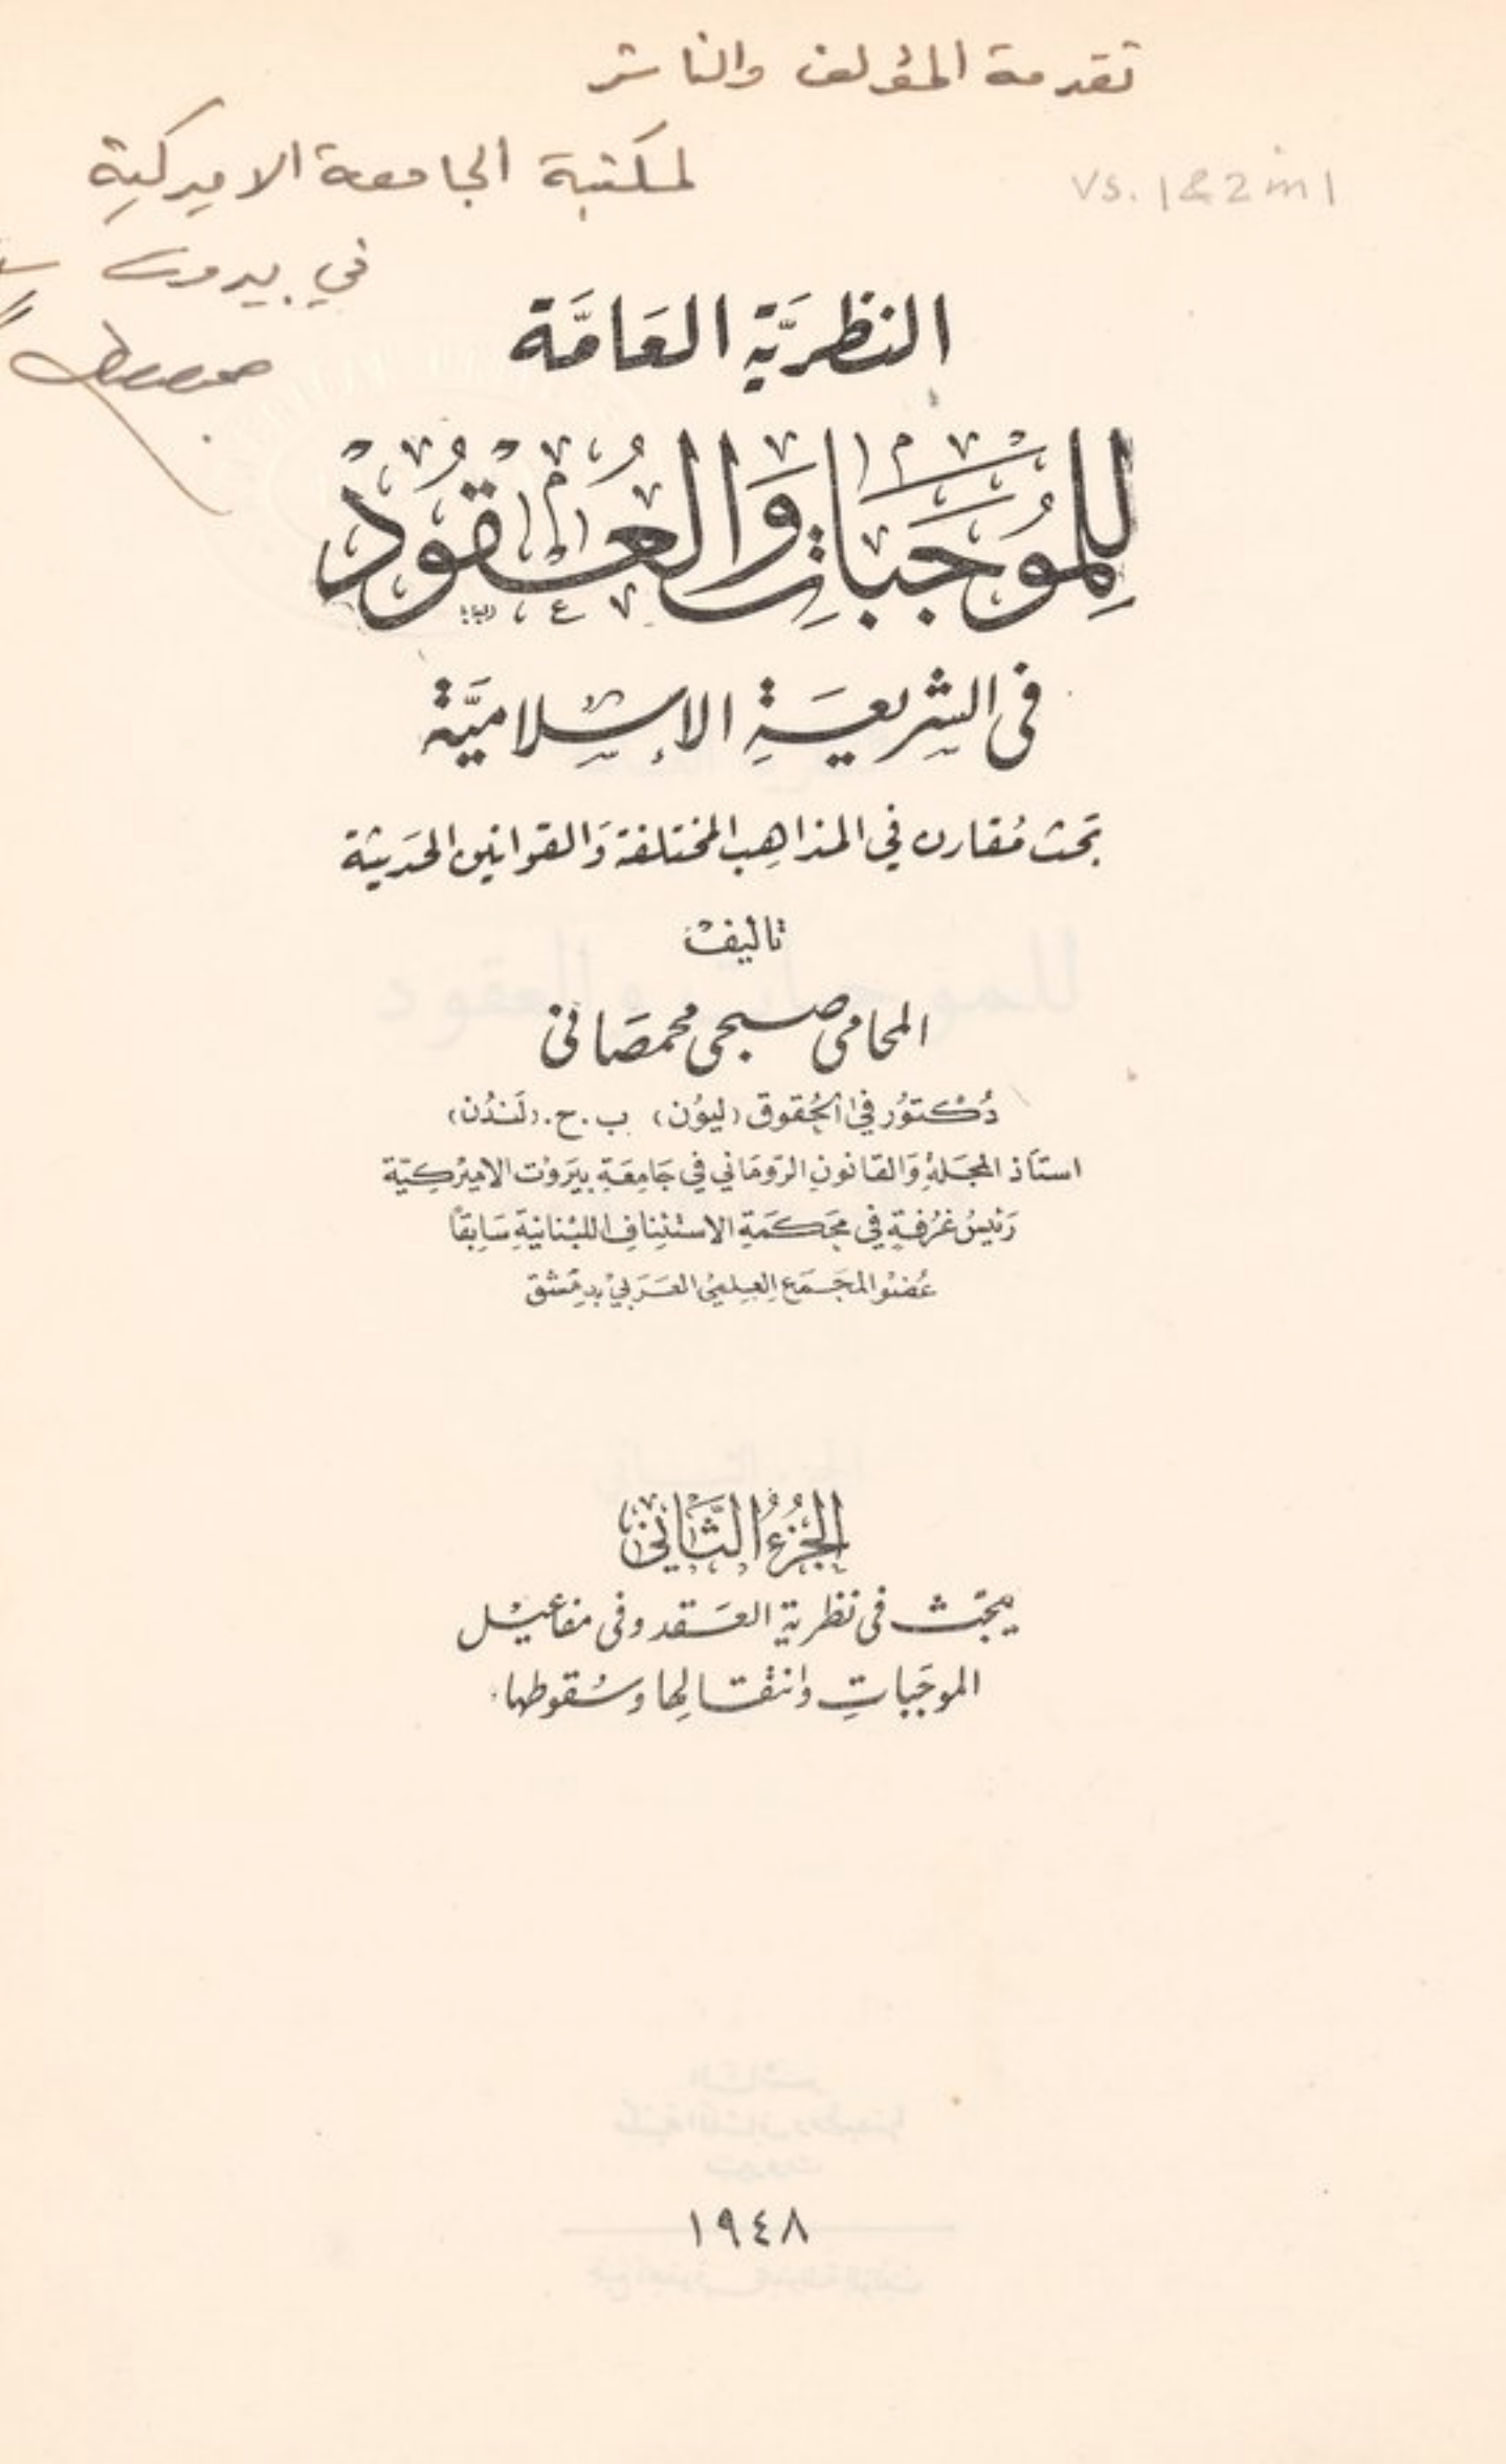 تقدمة المؤلف والناشر
لمكتبة الجامعة الاميركية
vs. 1&2 in 1
في بيروت
النظريَّة العَامَّة
للِمُوجَبَاتِ وَالعُقُودْ
في الشريعَةِ الإسْلاميَّة
بحث مُقارن في المذاهِب المختلفة وَالقوانين الحَديثة
تأليفْ
المحامي صبحي محمصَاني
دُكْتوُر في الحُقوق (ليوُن) ب.ح. (لَندُن)
استَاذ المجَلةِ وَالقانونِ الرّومَاني في جَامِعَةِ بيَروْت الاميْركِيّة
رَئيسُ غرُفةٍ في محَكمَةِ الاستئنِافِ اللبْنانيَّةِ سَابِقاً
عُضوُ المجَمَع العِلميّ العَرَبيْ بدِمَشق
الجُزءُ الثَّانيْ
يبحَث في نظريةِ العَقد وفي مفاعيْل
الموجَباتِ وانتْقالِها وسُقوطها
١٩٤٨